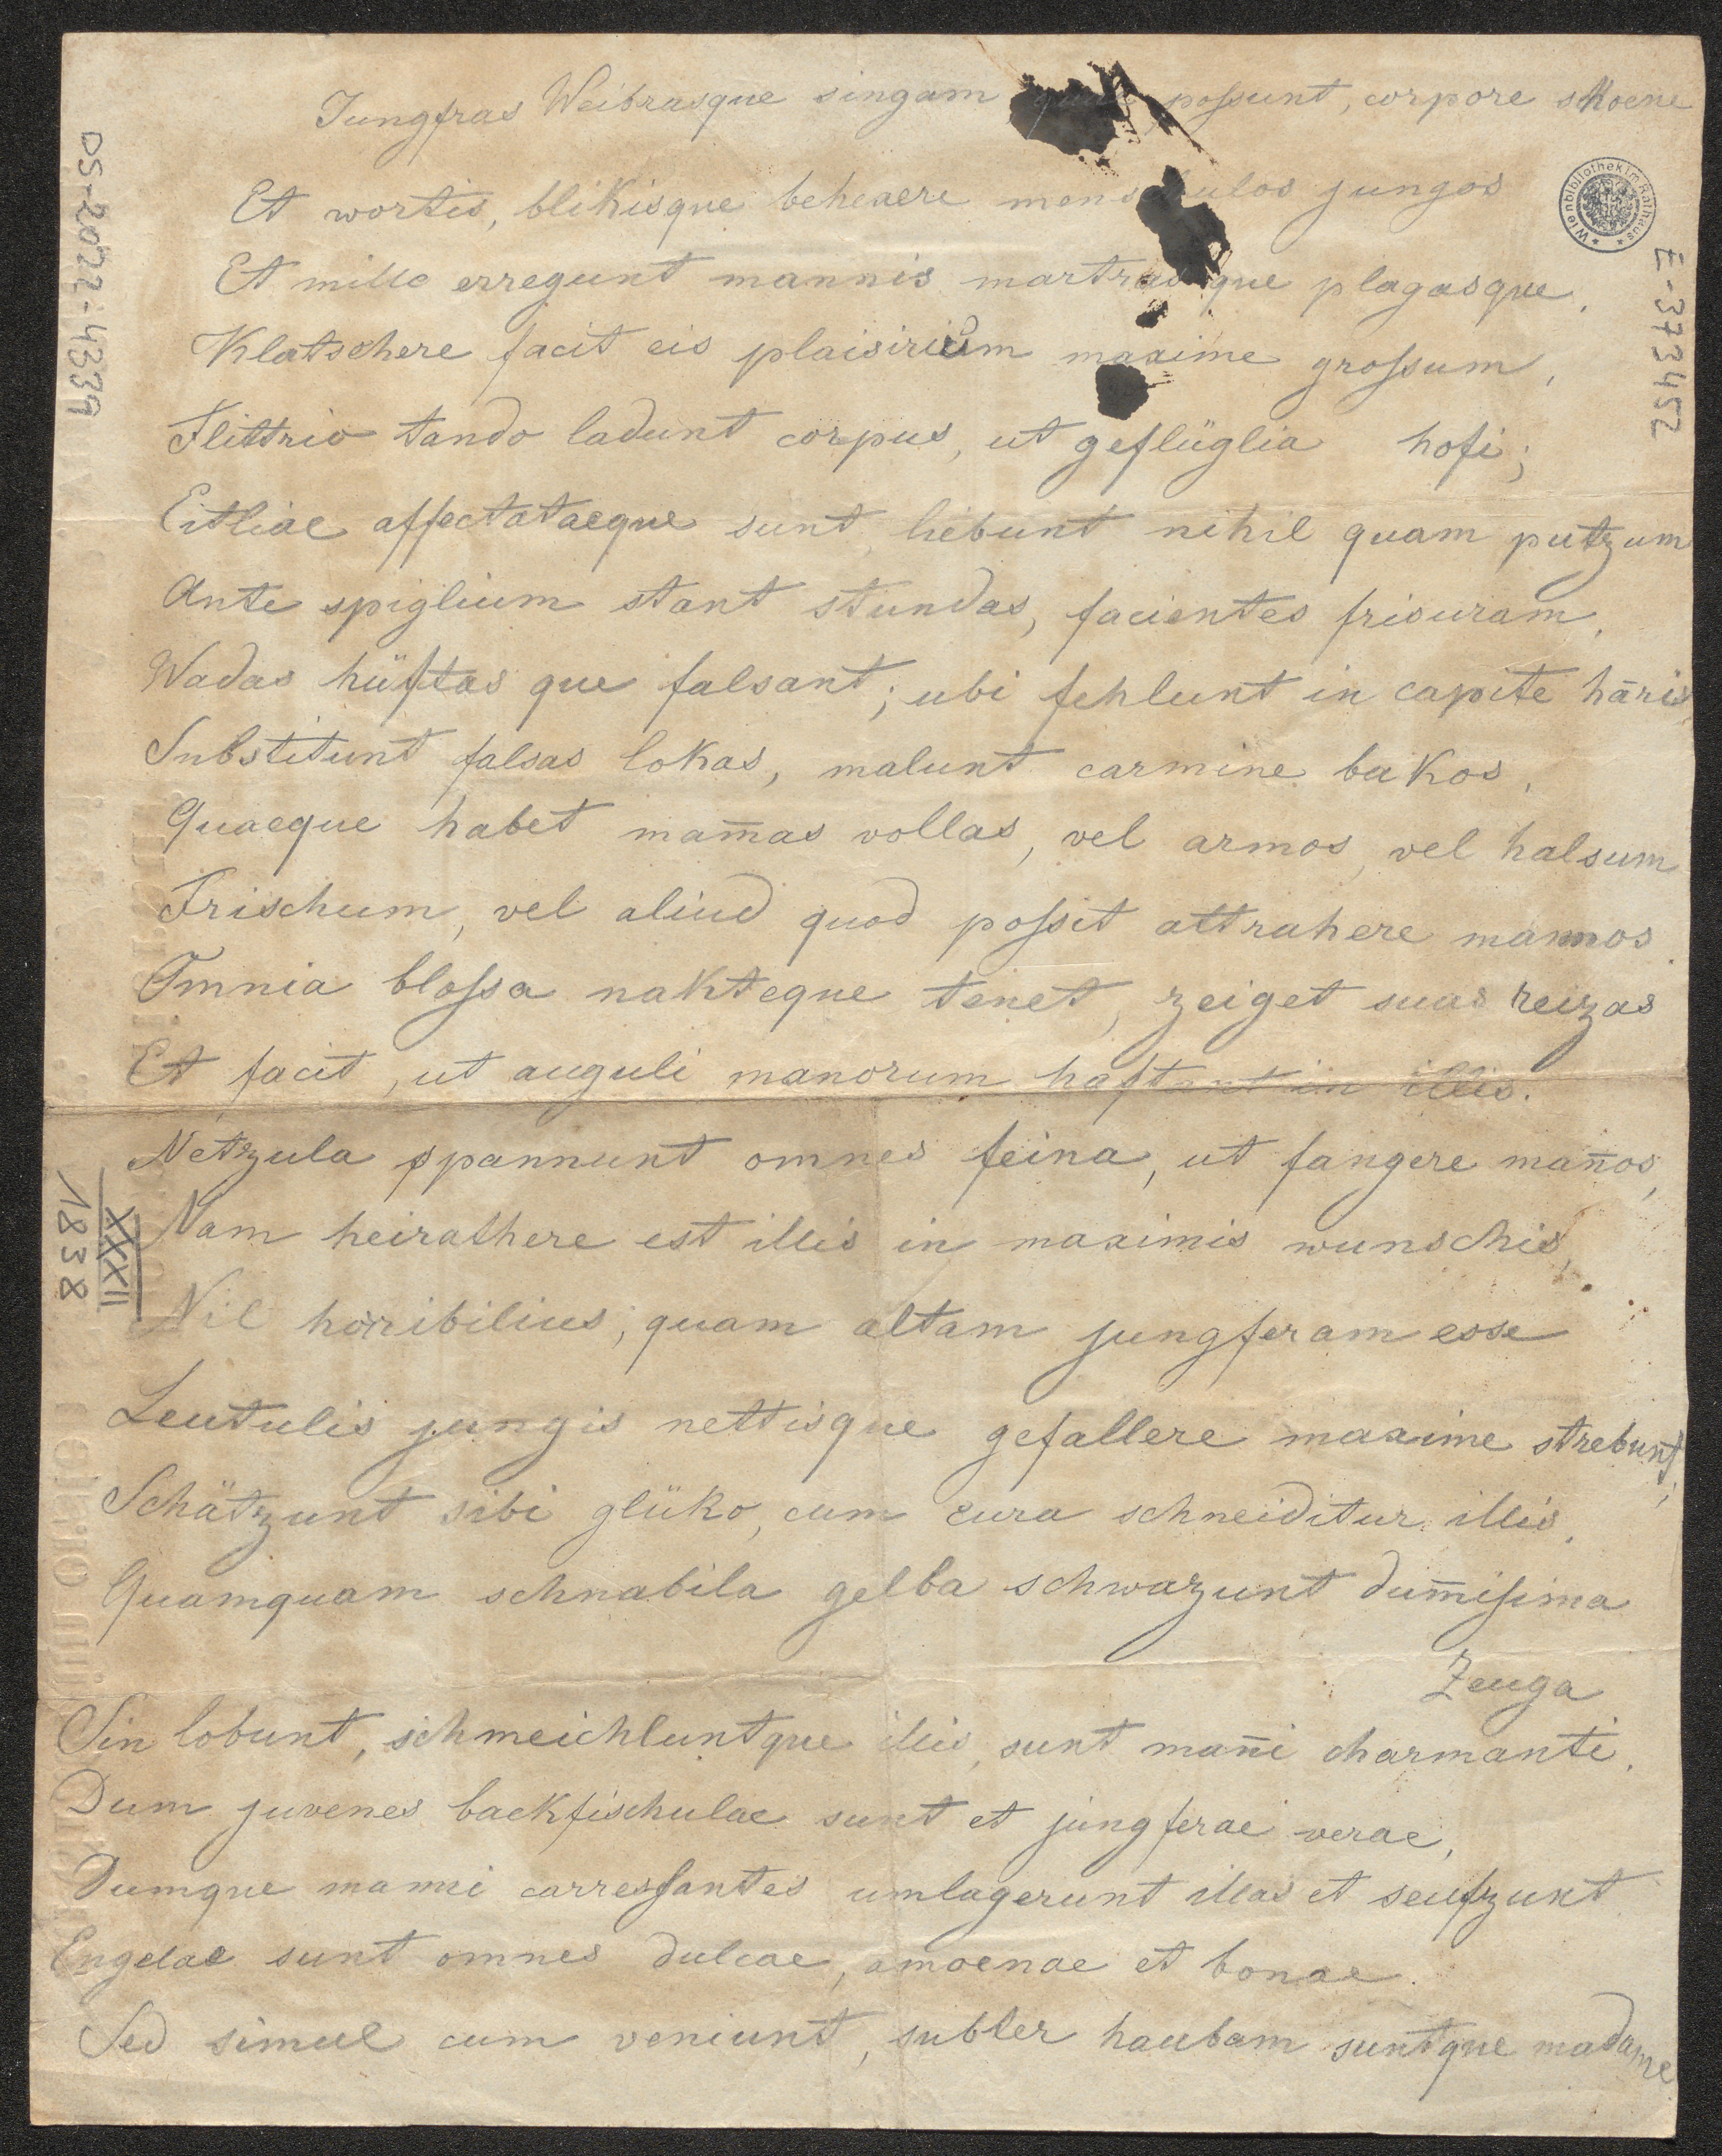 Jungfras Weibrasque singam quae possunt, corpore schoene
Et wortis, blikisque behexere menschulos jungos
Et mille erregunt mannis martrasque plagasque,
Klatschere facit eis plaisirium maxime grossum,
Flittrio tando ladunt corpus, ut geflüglia hofi;
Eitliae affectataeque sunt, liebunt nihil quam putzum
Ante spiglium stant stundas, facientes frisuram,
Wadas hüftas que falsant; ubi fehlunt in capite hāris
Substitunt falsas lokas, malunt carmine bakos,
Quaeque habet mam̄as vollas, vel armos, vel halsum
Frischum, vel aliud quod possit attrahere mannos
Omnia blossa nakteque tenet, zeiget suas reizas
Et facit, ut auguli manorum haftunt in illis.
Netzula spannunt omnes feina, ut fangere man̄os,
Nam heirathere est illis in maximis wunschis,
Nil horribilius, quam altam jungferam esse
Leutulis jungis nettisque gefallere maxime strebunt,
Schätzunt sibi glüko, cum cura schneiditur illis,
Quamquam schnabila gelba schwazunt dum̄issima
Zeuga
Sin lobunt, schmeichluntque illis, sunt man̄i charmanti,
Dum juvenes backfischulae sunt et jungferae verae,
Dumque manni carressantes umlagerunt illas et seufzunt
Engelae sunt omnes dulcae, amoenae et bonae.
Sed simul cum veniunt, subter haubam suntque madame
DS-2022-4339
E-373452
Wienbibliothek im Rathaus
XXXII
1838